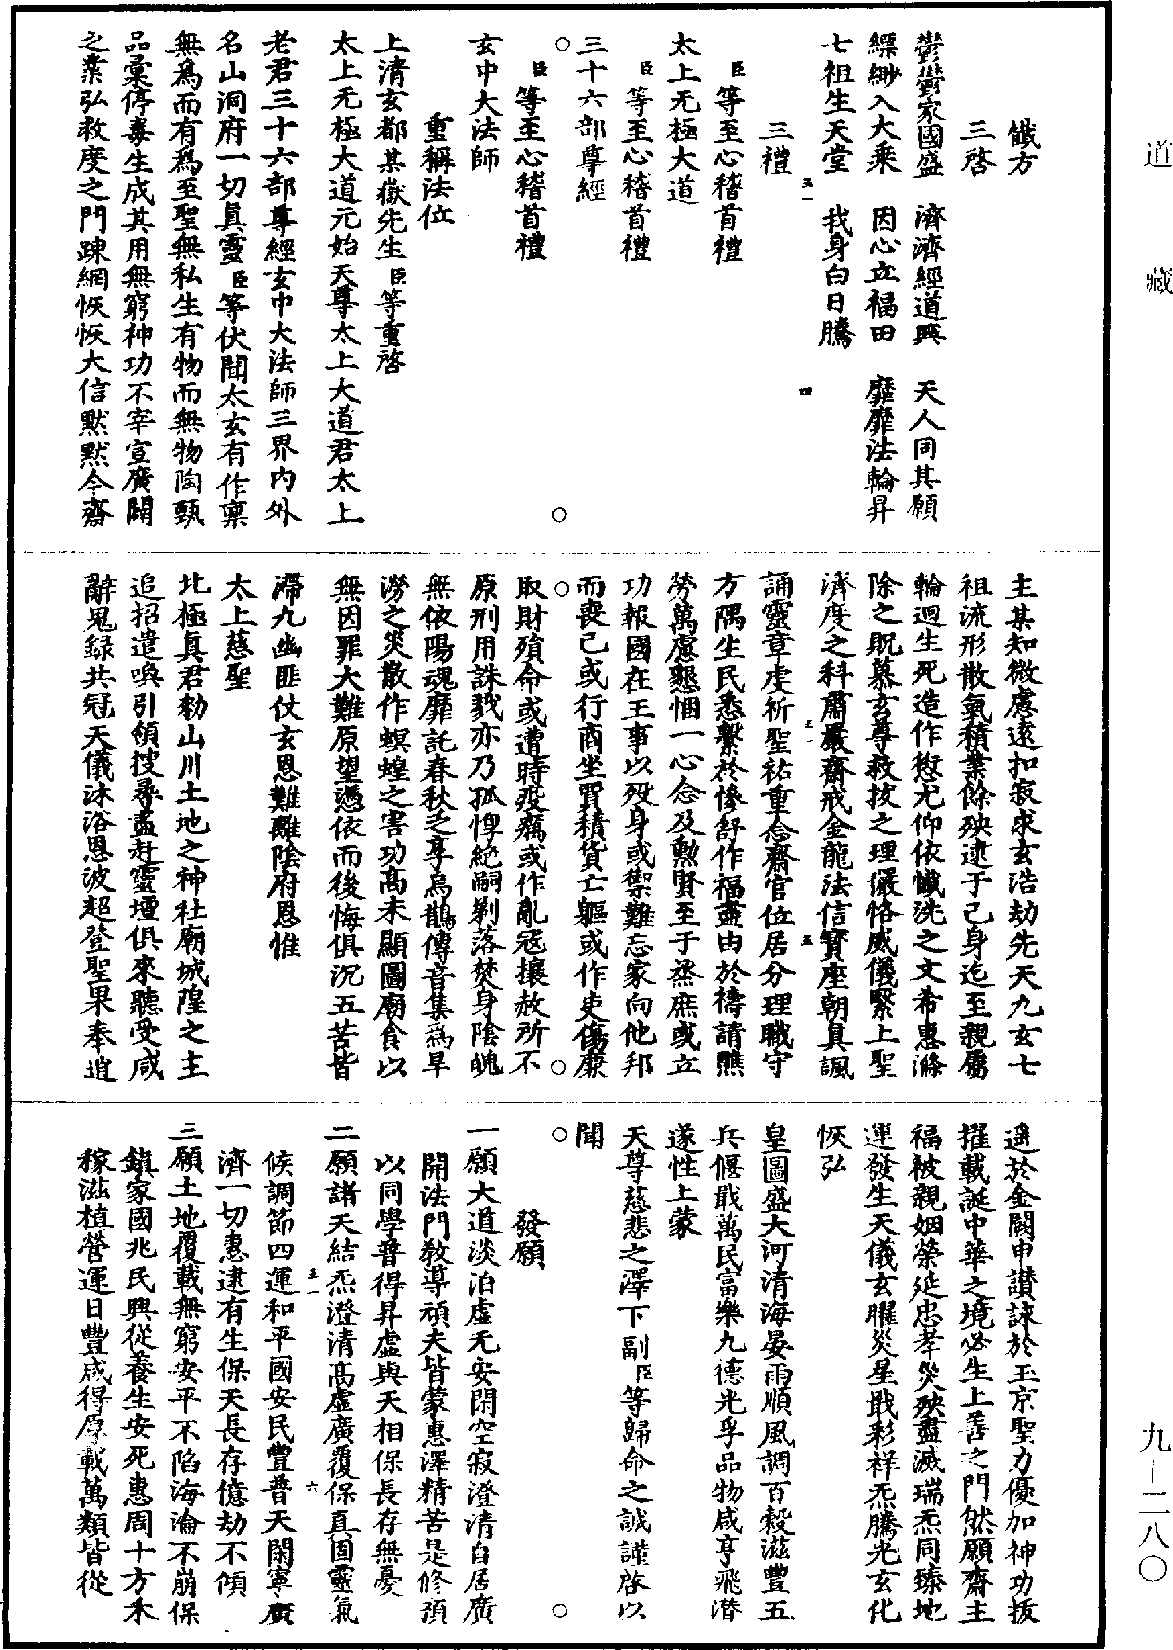 懺方
三啓
鬱鬱家國盛　濟濟經道興　天人同其願
縹緲入大乘　因心立福田　靡靡法輪昇
七祖生天堂　我身白日騰
三禮
臣等至心稽首禮
太上无極大道
臣等至心稽首禮
三十六部尊經
臣等至心稽首禮
玄中大法師
重稱法位
上清玄都某嶽先生臣等重啓
太上无極大道元始天尊太上大道君太上
老君三十六部尊經玄中大法師三界內外
名山洞府一切真靈臣等伏聞太玄有作稟
無爲而有爲至聖無私生有物而無物陶甄
品彙停毒生成其用無窮神功不宰宣廣闢
之業弘救度之門踈網恢恢大信黙黙今齋
主某知微慮遠扣寂求玄浩劫先天九玄七
祖流形散氣積業餘殃逮于己身迄至親屬
輪迴生死造作愆尤仰依懺洗之文希惠滌
除之貺慕玄尊救拔之理儼恪威儀繄上聖
濟度之科肅嚴齋戒金龍法信寶座朝真諷
誦靈章虔祈聖祐重念齋官位居分理職守
方隅生民悉繫於慘舒作福盡由於禱請瞧
勞萬慮懇悃一心念及勲賢至于蒸庶或立
功報國在王事以歿身或禦難忘家向他邦
而喪己或行商坐賈積貨亡軀或作吏傷廉
取財殞命或遭時疫癘或作亂寇攘赦所不
原刑用誅戮亦乃孤惸絶嗣剃落焚身陰魄
無依陽魂靡託春秋乏享烏鵲傳音集爲旱
澇之災散作螟蝗之害功髙未顯圖廟食以
無因罪大難原望憑依而後悔俱沉五苦皆
滯九幽匪仗玄恩難離陰府恩惟
太上慈聖
北極真君勑山川土地之神社廟城隍之主
追招遣喚引領搜尋盡赴靈壇俱來聽受咸
辭鬼録共冠天儀沐浴恩波超登聖果奉逍
遥於金闕申讃詠於玉京聖力優加神功拔
擢載誕中華之境必生上善之門然願齋主
福被親姻榮延忠孝災殃盡滅瑞炁同臻地
運發生天儀玄曜災星戢彩祥炁騰光玄化
恢弘
皇圖盛大河清海晏雨順風調百穀滋豐五
兵偃戢萬民富樂九德光孚品物咸亨飛潜
遂性上蒙
天尊慈悲之澤下副臣等歸命之誠謹啓以
聞
發願
一願大道淡泊虛无安閑空寂澄清自居廣
開法門教導頑夫皆蒙惠澤精苦是修預
以同學普得昇虛與天相保長存無憂
二願諸天結炁澄清髙虛廣覆保真固靈氣
候調節四運和平國安民豐普天閑寧廣
濟一切惠逮有生保天長存億劫不傾
三願土地覆載無窮安平不陷海淪不崩保
鎮家國兆民興從養生安死惠周十方禾
稼滋植營運日豐咸得厚載萬類皆從
道藏
九—二八〇